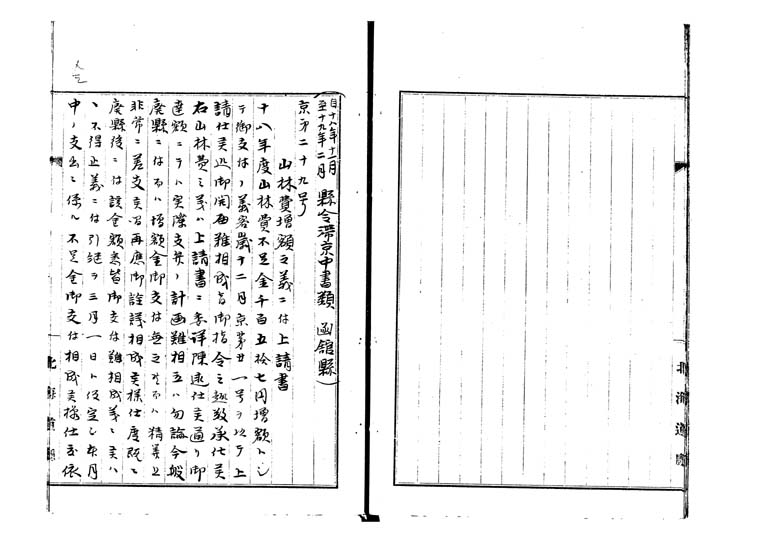 北海道廳
自十八年十一月
至十九年二月 縣令滞京中書類 函舘縣
京第二十九号
山林費増額之義ニ付上請書
十八年度山林費不足金千百五拾七円増額トシ
テ御支付ノ義客歳十二月京第廿一号ヲ以テ上
請仕候処御聞届難相成旨御指令之趣敬承仕候
右山林費之義ハ上請書ニ委詳陳述仕候通リ御
達額ニテハ実際支弁ノ計画難相立ハ勿論今般
廃縣ニ付テハ増額金御支付無之テハ精算上
非常ニ差支候間再應御詮議相成候様仕度既ニ
廃縣後ニ付該金額悉皆御支付難相成義ニ候ハ
、不得止義ニ付引継ヲ三月一日ト假定シ本月
中ノ支出ニ係ル不足金御支付相成候様仕度依